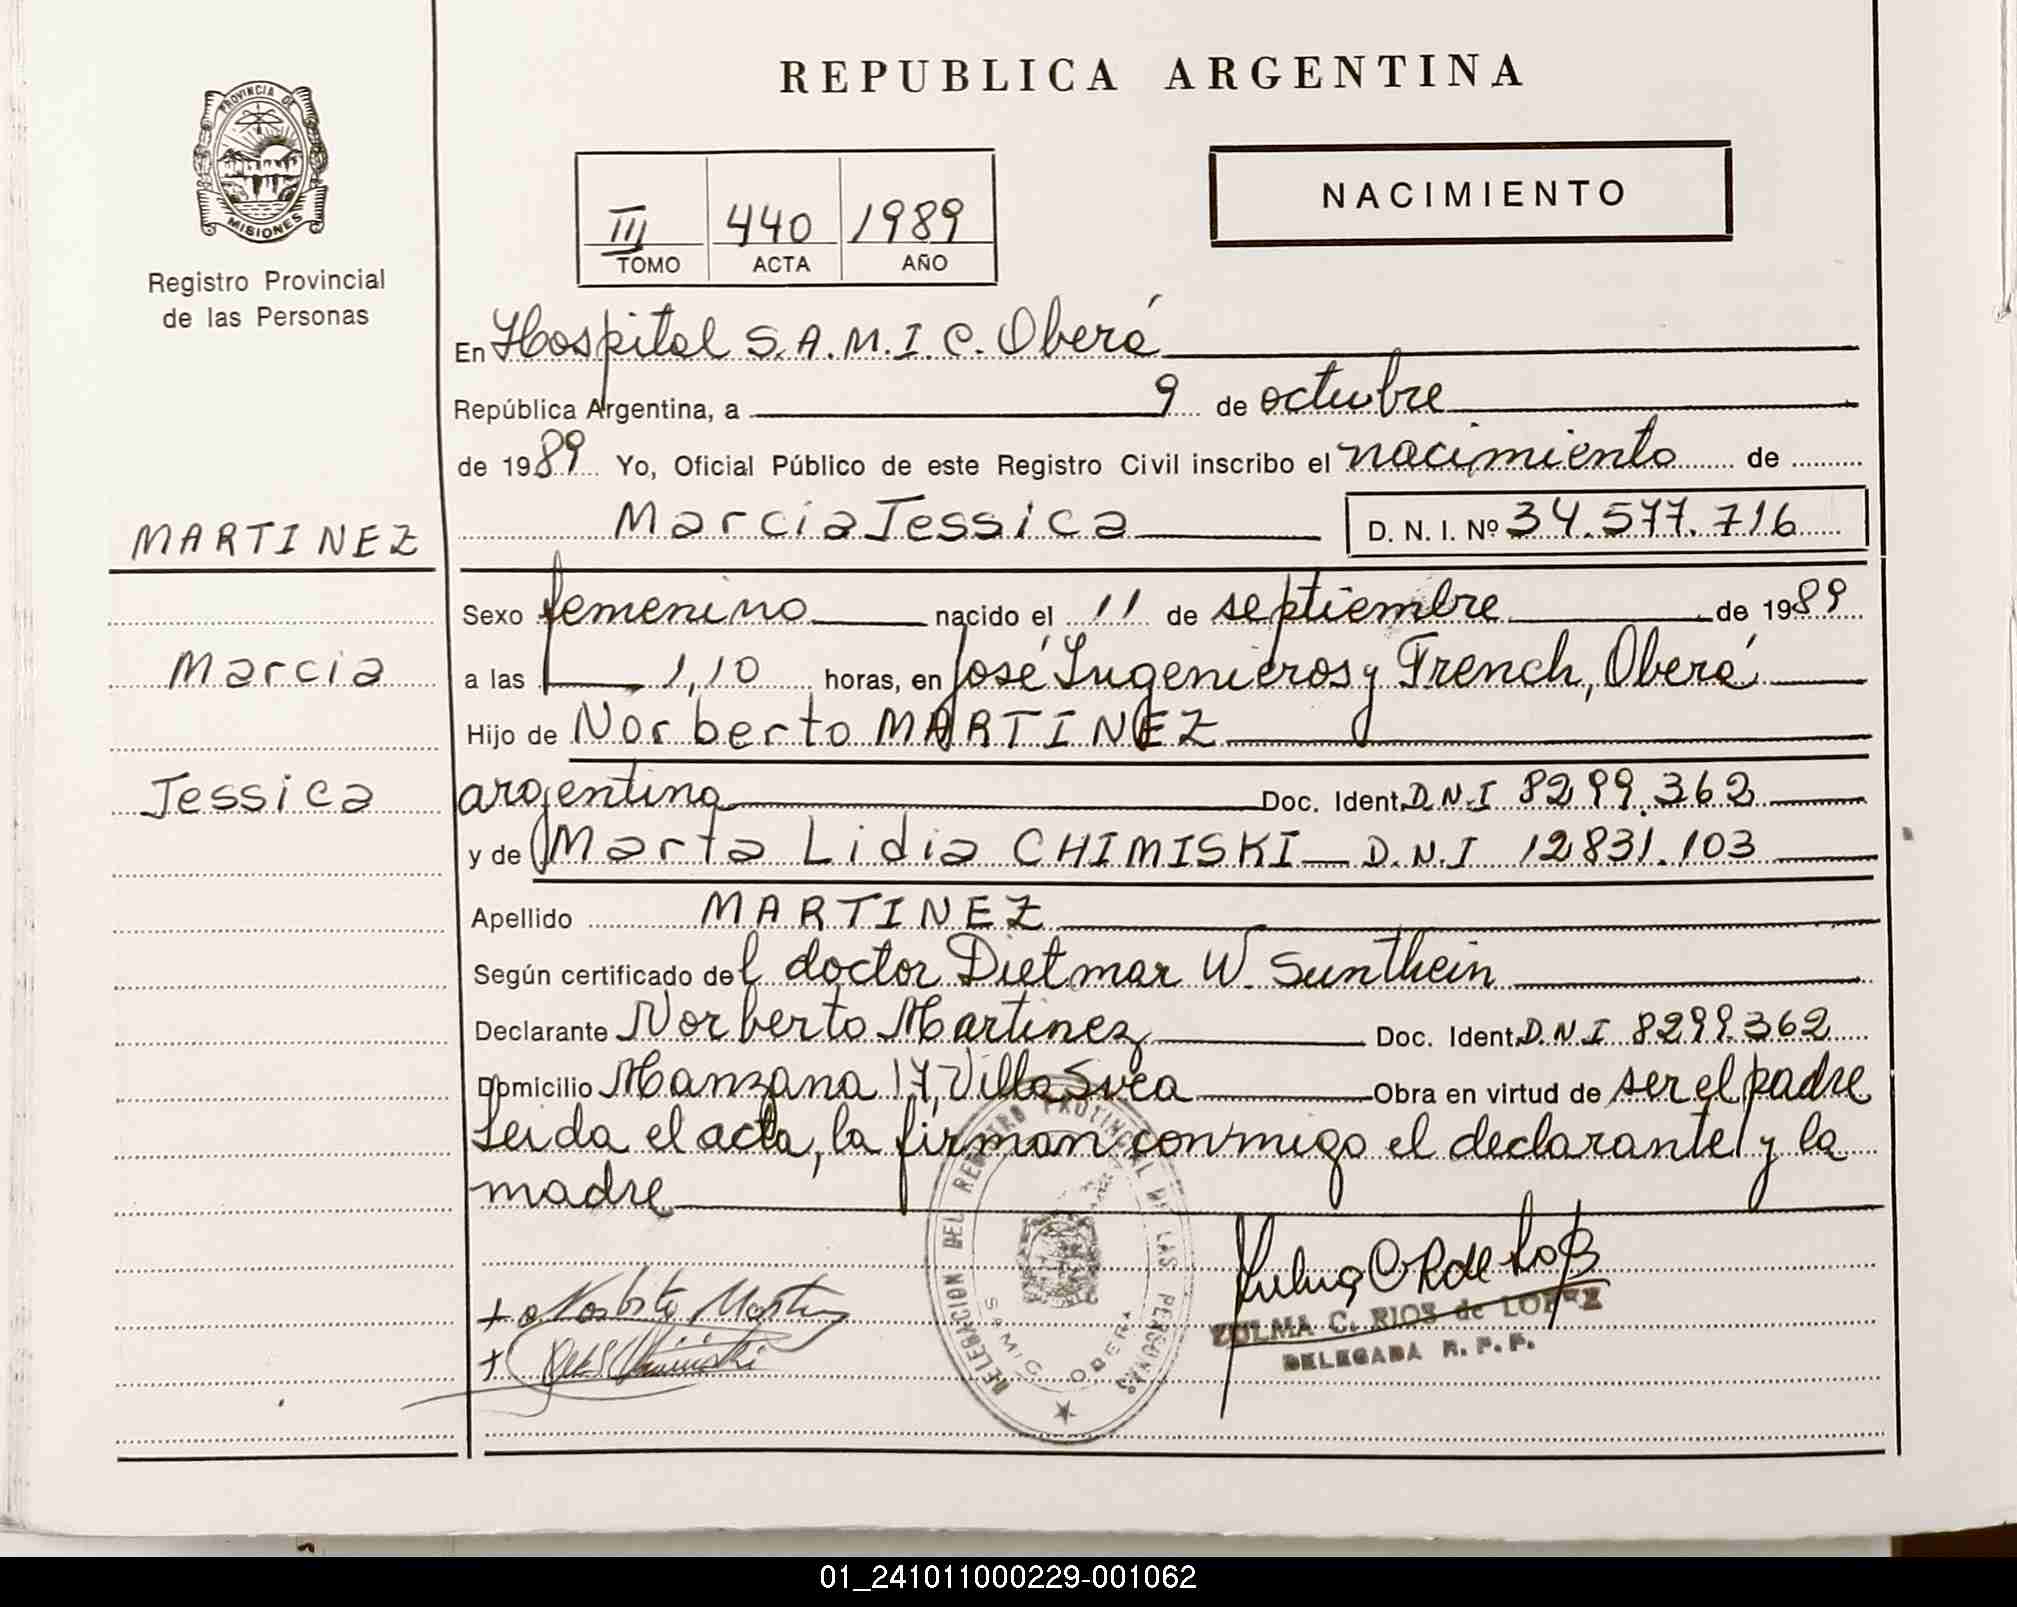 REPUBLICA ARGENTINA
PROVINCIA DE
MISIONES
Registro Provincial
de las Personas
NACIMIENTO
III 440 1989
TOMO ACTA AÑO
En Hospital S.A.M.I.C. Oberá
República Argentina, a 9 de octubre
de 1989 Yo, Oficial Público de este Registro Civil inscribo el nacimiento de
MARTINEZ
Marcia Jessica D. N. I. Nº 34.577.716
Sexo femenino nacido el 11 de septiembre de 1989
Marcia
a las 1,10 horas, en José Ingenieros y French, Oberá
Hijo de Norberto MARTINEZ
Jessica
argentina Doc. Ident. D.N.I 8299.362
y de Marta Lidia CHIMISKI D.N.I 12831.103
Apellido MARTINEZ
Según certificado del doctor Dietmar W. Sunthein
Declarante Norberto Martinez Doc. Ident. D.N.I 8299.362
Domicilio Manzana 17, Villa Svea Obra en virtud de ser el padre
Leida el acta, la firman conmigo el declarante y la
madre
DELEGACION DEL REGISTRO PROVINCIAL DE LAS PERSONAS
SAMIC OBERA
+ Norberto Martinez
+
ZULMA C. RIOS de LOPEZ
DELEGADA R. P. P.
01_241011000229-001062